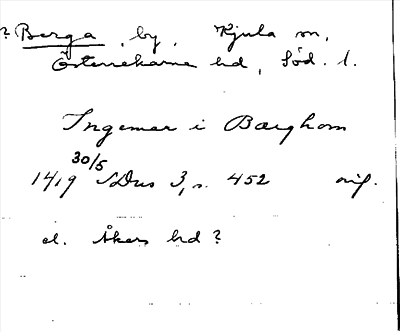 ? Berga, by, Kjula sn,
Österrekarne hd, Söd. l.
Ingemar i Bærghom
30/5
1419 SDns 3, s. 452 orig.
el. Åkers hd?